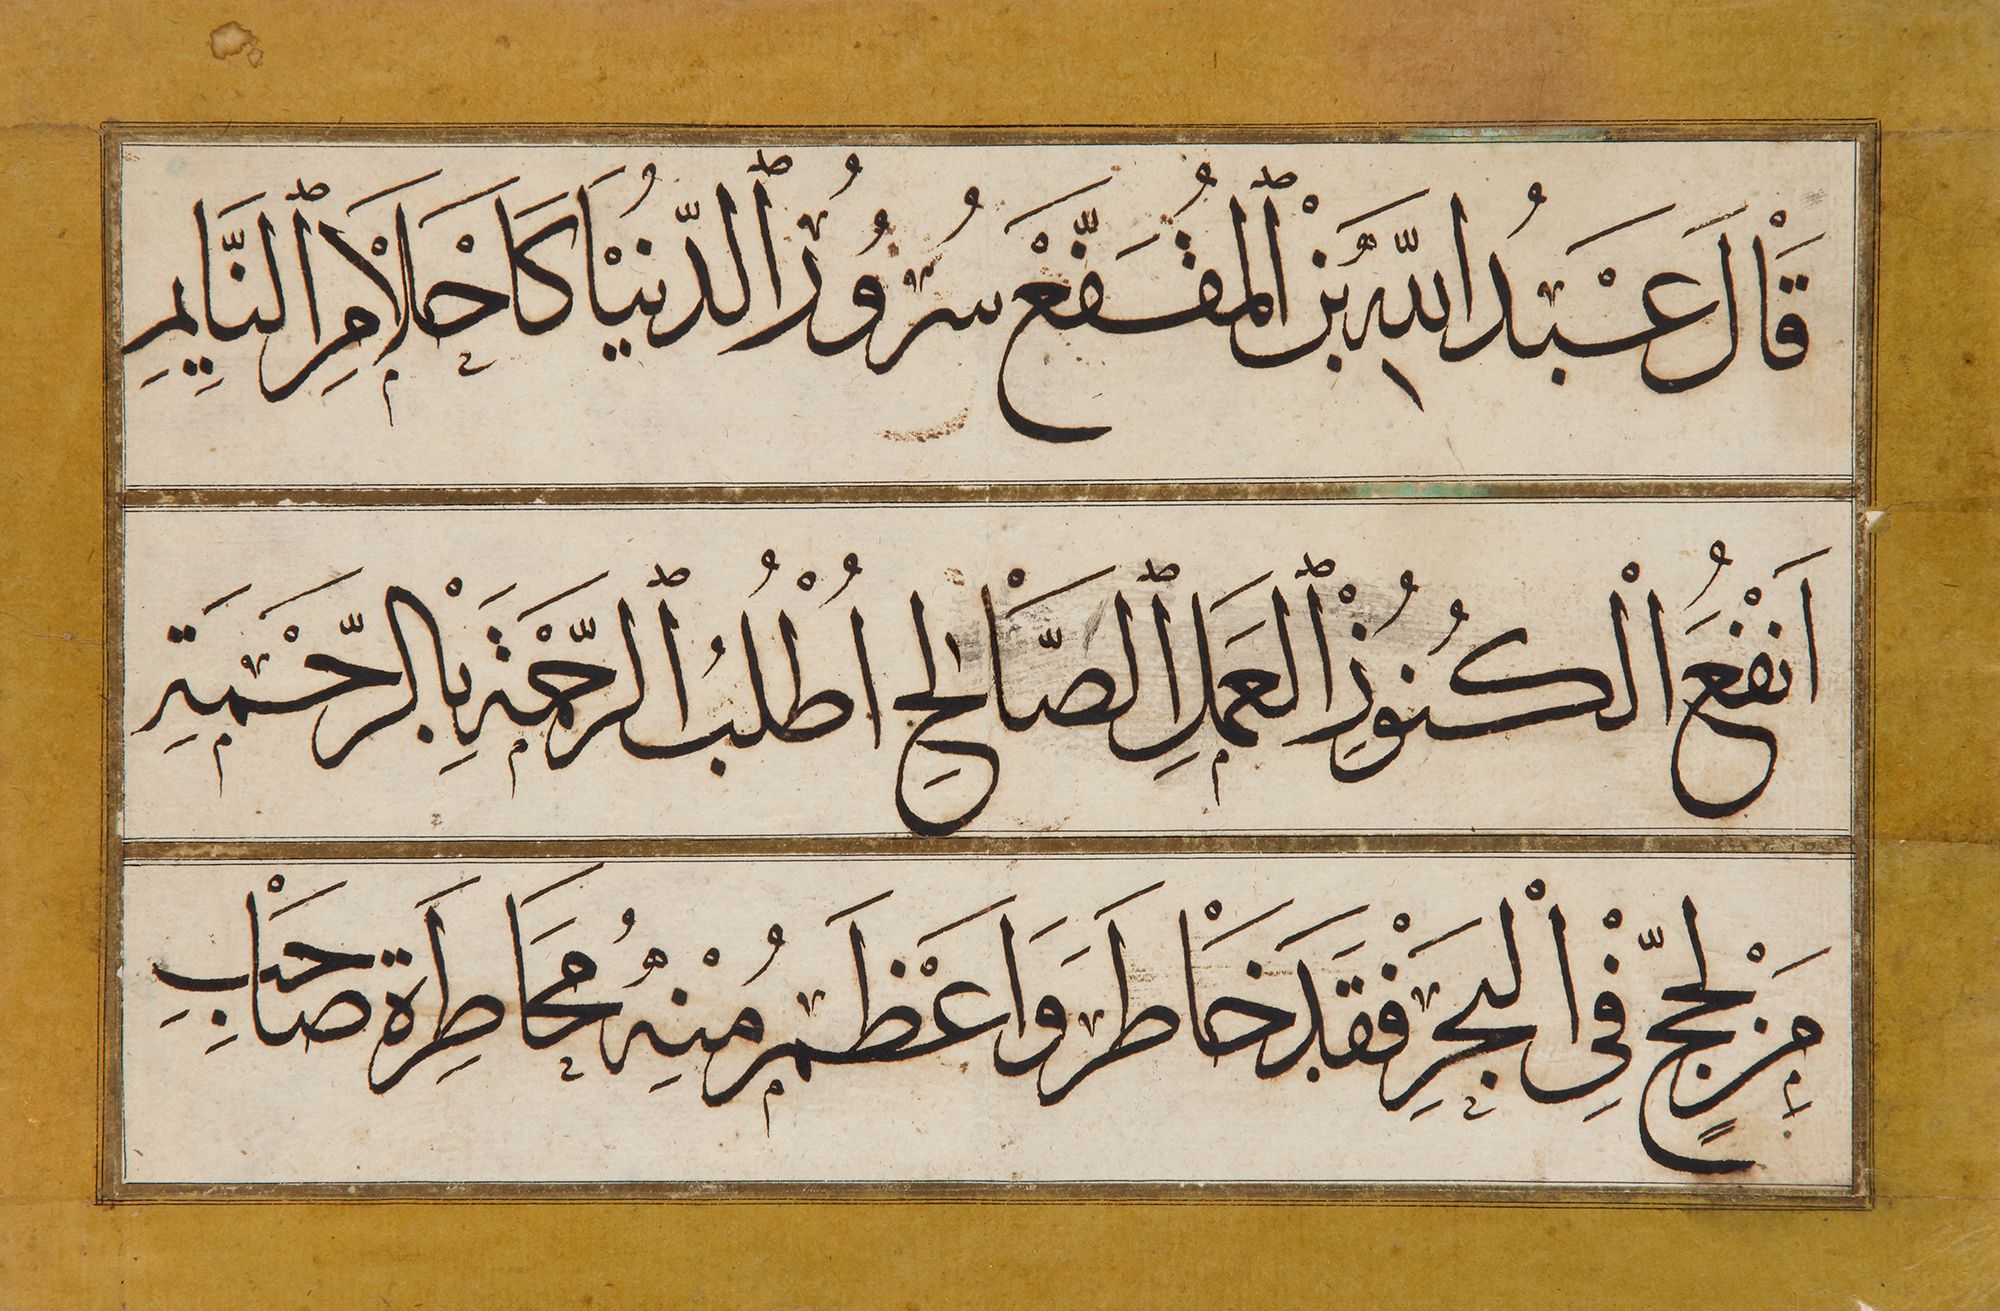 قَالَ عَبْدُ اللّٰهِ بْنُ الْمُقَفَّعْ سُرُورُ الدُّنْيَا كَاَحْلَامِ النَّايِمِ
اَنْفَعُ الْكُنُوزِ الْعَمَلِ الصَّالِحِ اُطْلُبُ الرَّحْمَةِ بِالرَّحْمَةِ
مَنْ لَجَّجَ فِى الْبَحْرِ فَقَدْ خَاطَرَ وَاَعْظَمُ مِنْهُ مُخَاطِرَة صَاحِبِ